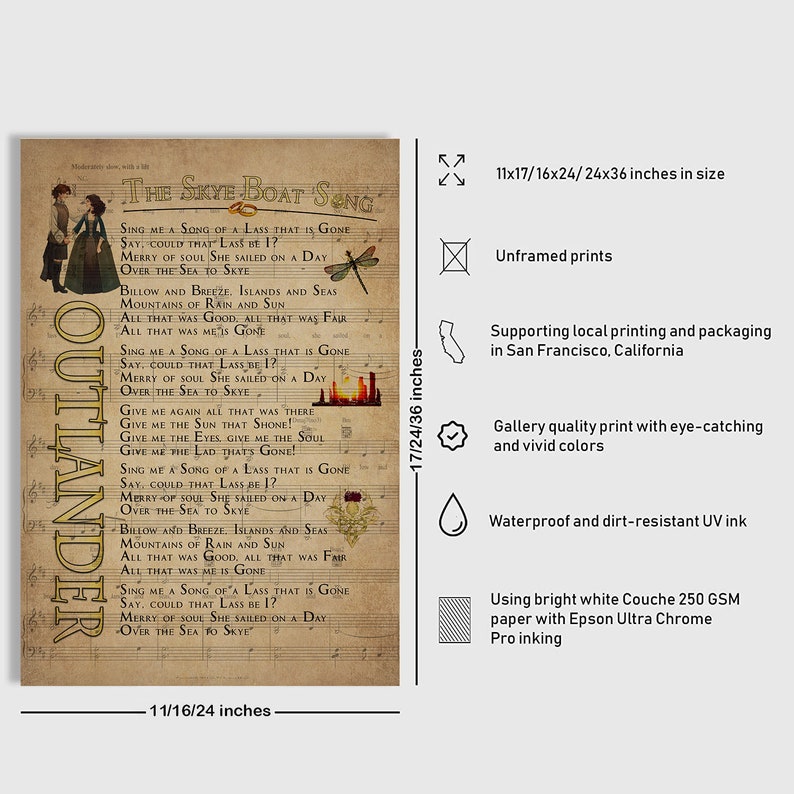 Moderately slow, with a lilt
The Skye Boat Song
Sing me a Song of a Lass that is Gone
Say, could that Lass be I?
Merry of soul She sailed on a Day
Over the Sea to Skye
Billow and Breeze, Islands and Seas
Mountains of Rain and Sun
All that was Good, all that was Fair
All that was me is Gone
Sing me a Song of a Lass that is Gone
Say, could that Lass be I?
Merry of soul She sailed on a Day
Over the Sea to Skye
Give me again all that was there
Give me the Sun that Shone!
Give me the Eyes, give me the Soul
Give me the Lad that's Gone!
Sing me a Song of a Lass that is Gone
Say, could that Lass be I?
Merry of soul She sailed on a Day
Over the Sea to Skye
Billow and Breeze, Islands and Seas
Mountains of Rain and Sun
All that was Good, all that was Fair
All that was me is Gone
Sing me a Song of a Lass that is Gone
Say, could that Lass be I?
Merry of soul She sailed on a Day
Over the Sea to Skye"
OUTLANDER
17/24/36 inches
11/16/24 inches
11x17/ 16x24/ 24x36 inches in size
Unframed prints
Supporting local printing and packaging
in San Francisco, California
Gallery quality print with eye-catching
and vivid colors
Waterproof and dirt-resistant UV ink
Using bright white Couche 250 GSM
paper with Epson Ultra Chrome
Pro inking